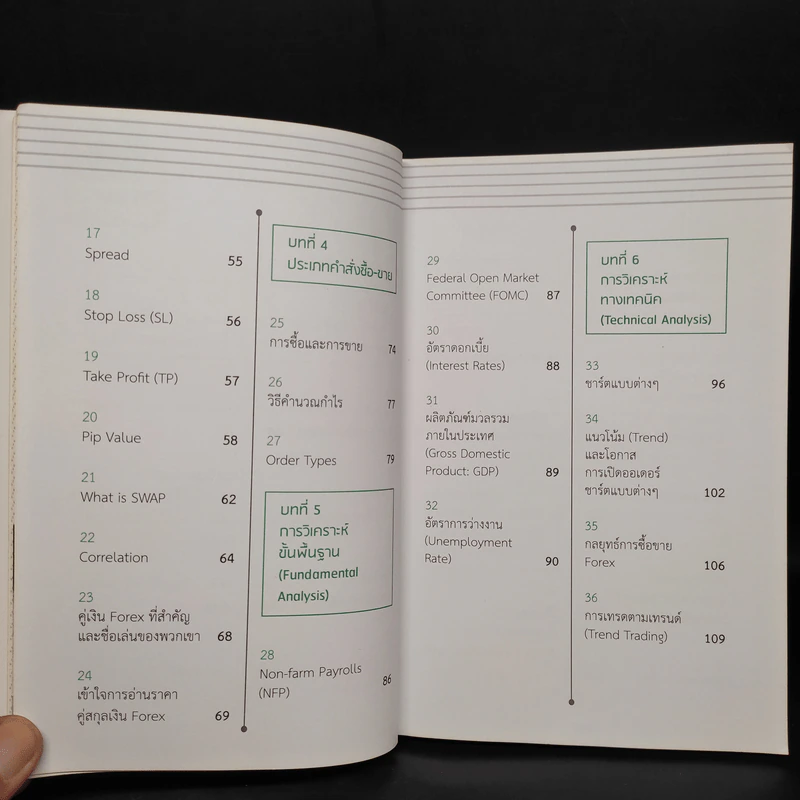 17
Spread 55
18
Stop Loss (SL) 56
19
Take Profit (TP) 57
20
Pip Value 58
21
What is SWAP 62
22
Correlation 64
23
คู่เงิน Forex ที่สำคัญ
และชื่อเล่นของพวกเขา 68
24
เข้าใจการอ่านราคา
คู่สกุลเงิน Forex 69
บทที่ 4
ประเภทคำสั่งซื้อ-ขาย
25
การซื้อและการขาย 74
26
วิธีคำนวณกำไร 77
27
Order Types 79
บทที่ 5
การวิเคราะห์
ขั้นพื้นฐาน
(Fundamental
Analysis)
28
Non-farm Payrolls 86
(NFP)
29
Federal Open Market
Committee (FOMC) 87
30
อัตราดอกเบี้ย
(Interest Rates) 88
31
ผลิตภัณฑ์มวลรวม
ภายในประเทศ
(Gross Domestic
Product: GDP) 89
32
อัตราการว่างงาน
(Unemployment
Rate) 90
บทที่ 6
การวิเคราะห์
ทางเทคนิค
(Technical Analysis)
33
ชาร์ตแบบต่างๆ 96
34
แนวโน้ม (Trend)
และโอกาส
การเปิดออเดอร์
ชาร์ตแบบต่างๆ 102
35
กลยุทธ์การซื้อขาย
Forex 106
36
การเทรดตามเทรนด์
(Trend Trading) 109